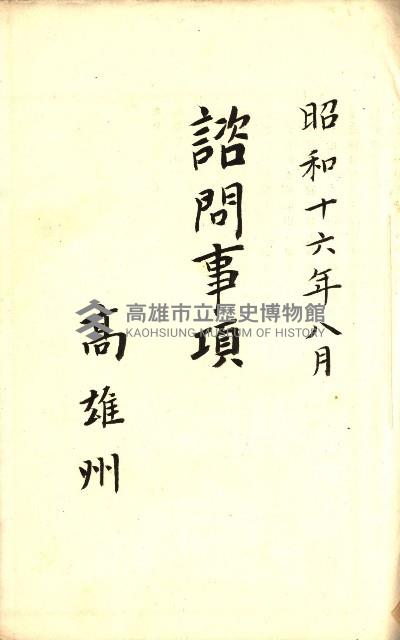 昭和十六年八月
諮問事項
高雄州
高雄市立歷史博物館
KAOHSIUNG MUSEUM OF HISTORY